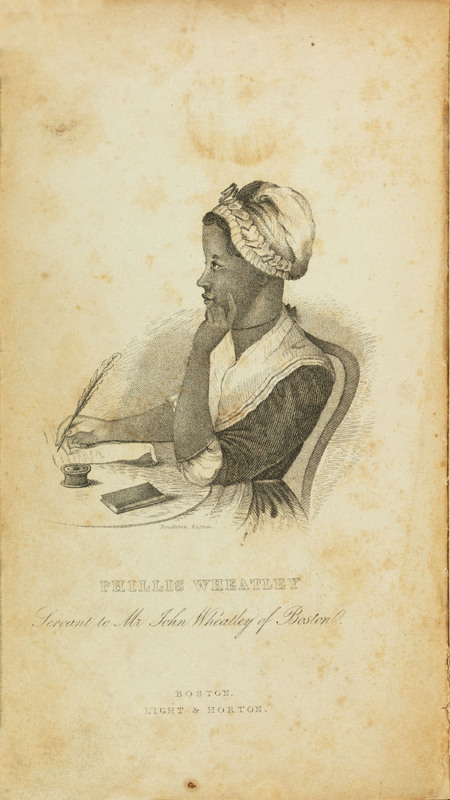 Pendleton.
PHILLIS WHEATLEY
Servant to Mr. John Wheatley of Boston.
BOSTON.
LIGHT & HORTON.